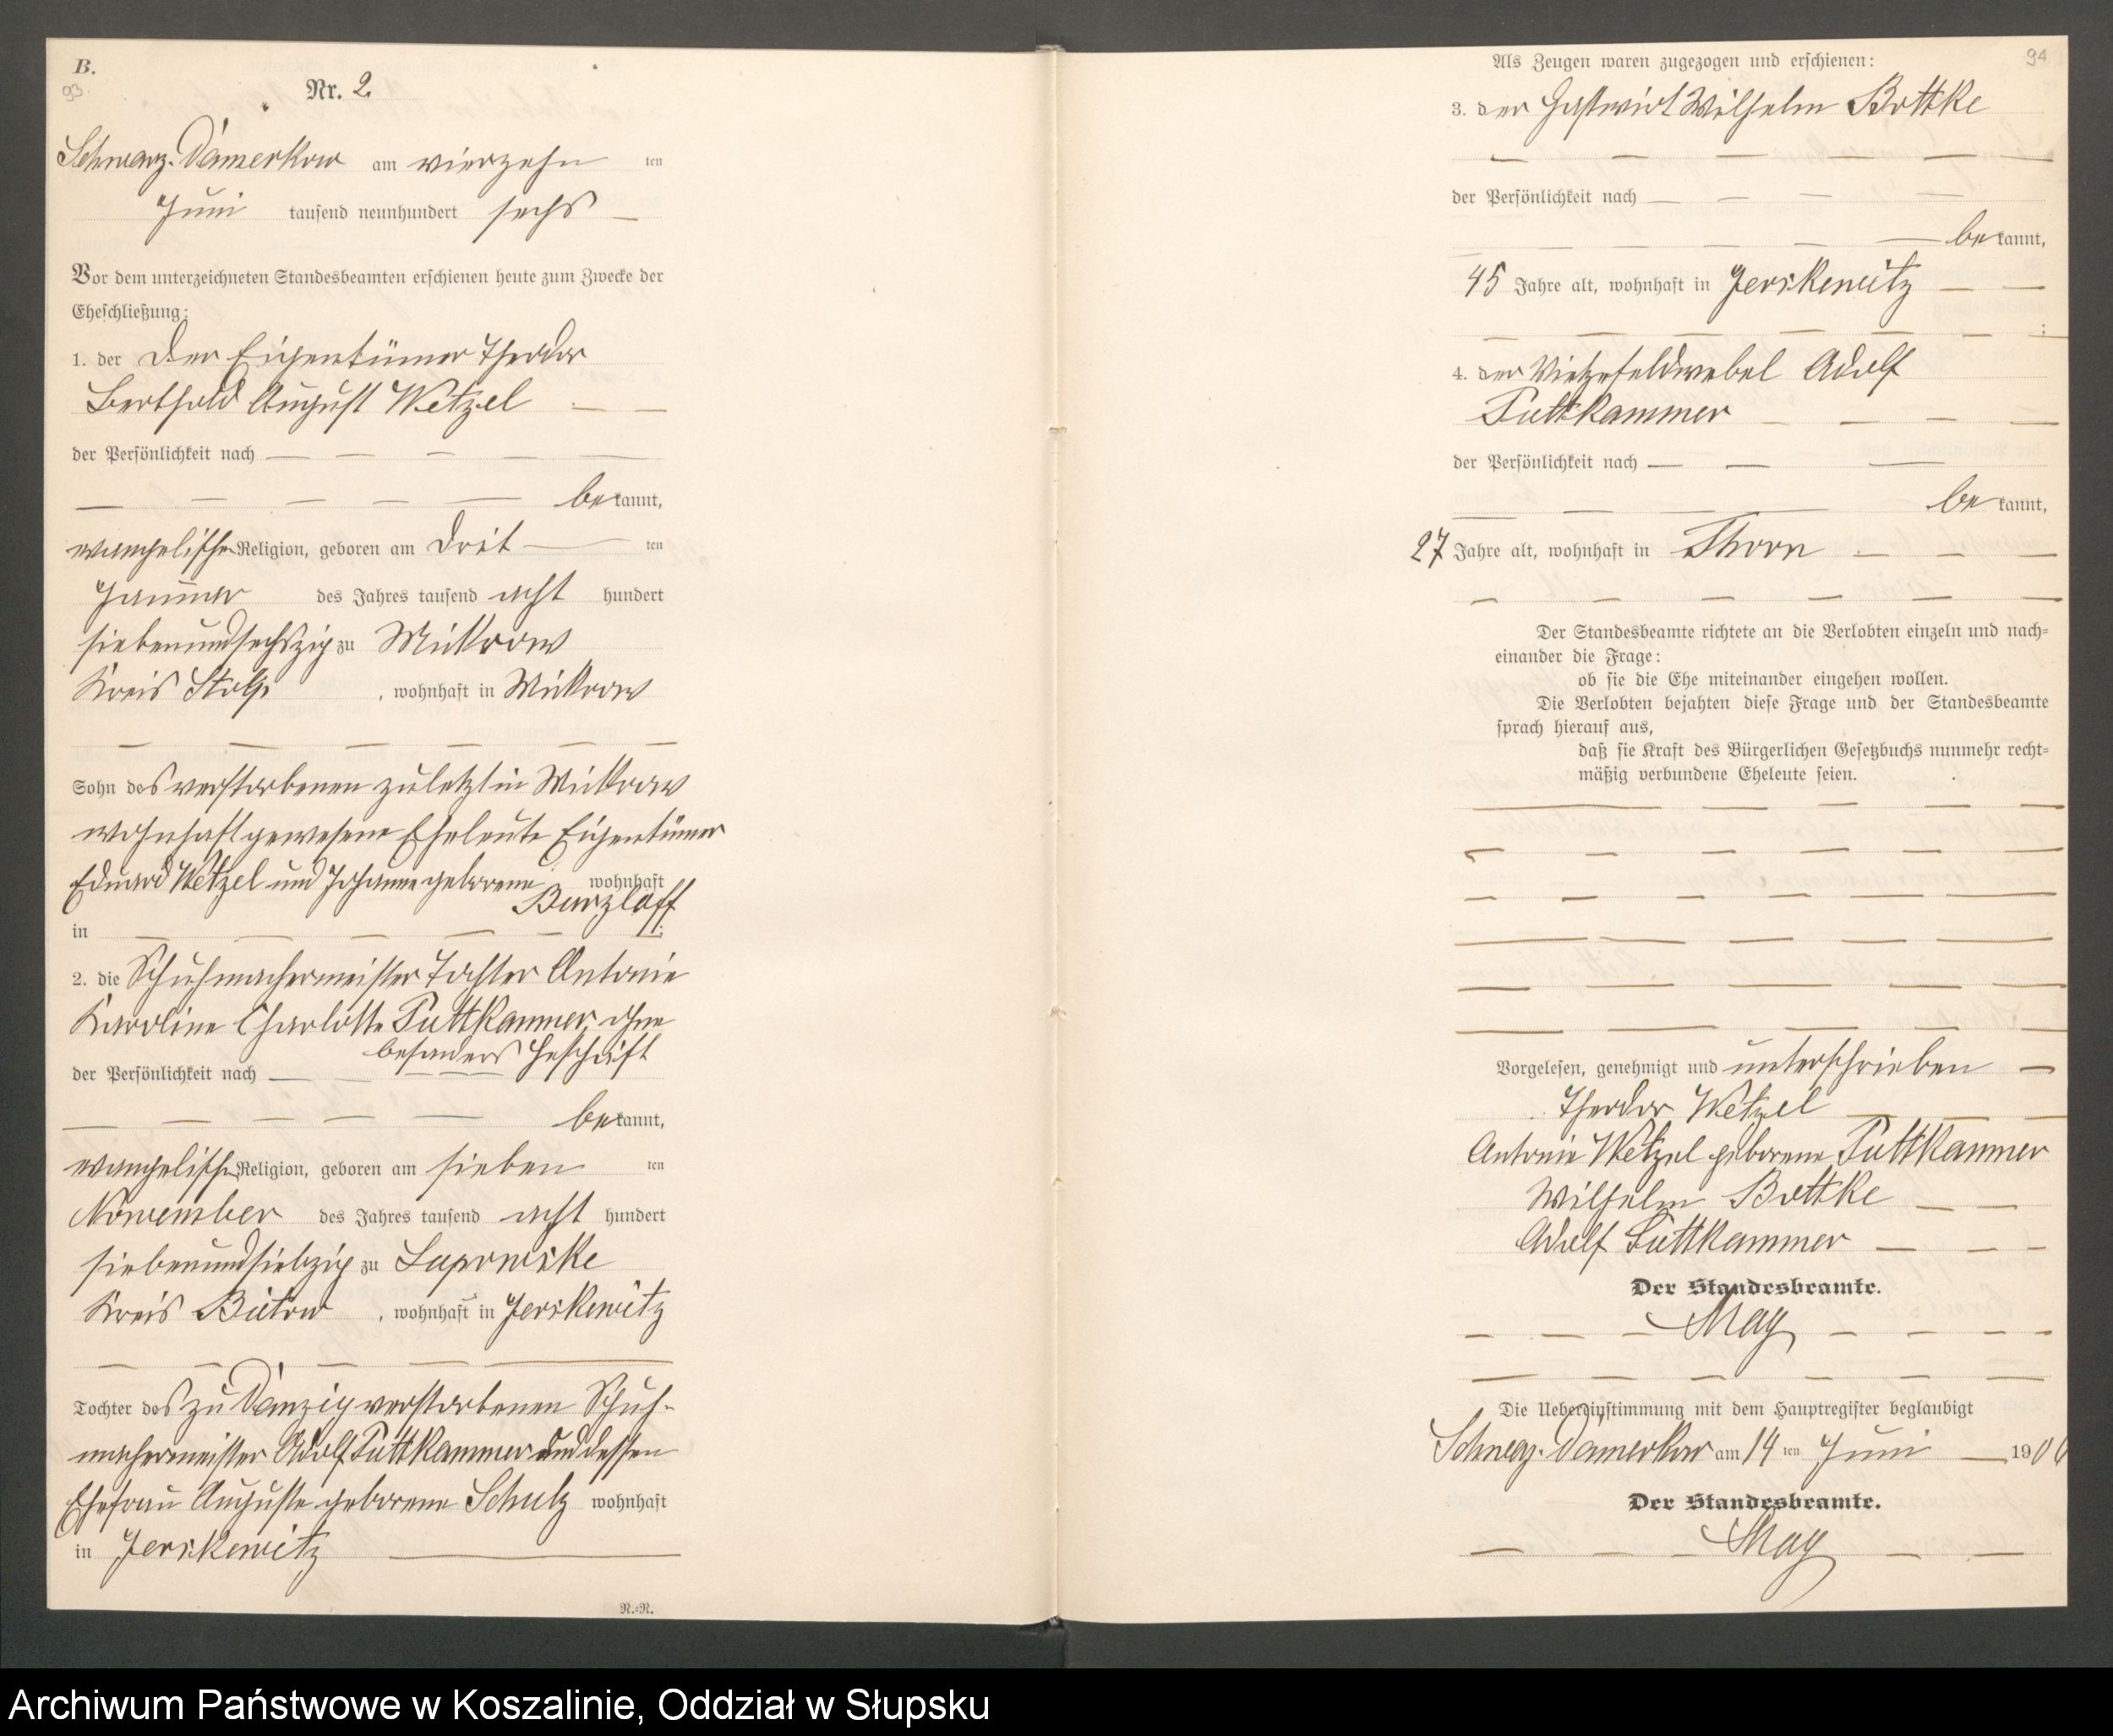 B.
93.
Nr. 2
Schwarz-Damerkow am vierzehn ten
Juni tausend neunhundert sechs
Vor dem unterzeichneten Standesbeamten erschienen heute zum Zwecke der
Eheschließung:
1. der Der Eigentümer Theodor
Berthold August Wetzel
der Persönlichkeit nach
be kannt,
evangelischer Religion, geboren am drit ten
Januar des Jahres tausend acht hundert
siebenundsechszig zu Mickrow
Kreis Stolp, wohnhaft in Mickrow
Sohn des verstorbenen zuletzt in Mickrow
wohnhaft gewesene Eheleute Eigentümer
Eduard Wetzel und Johanne geborene wohnhaft
Banzlaff
in
2. die Schuhmachermeister Tochter Antonie
Karoline Charlotte Puttkammer, ohne
besonders Geschäft
der Persönlichkeit nach
be kannt,
evangelischer Religion, geboren am sieben ten
November des Jahres tausend acht hundert
siebenundsiebzig zu Lupowske
Kreis Bütow, wohnhaft in Jerskewitz
Tochter des zu Danzig verstorbenen Schuh-
machermeister Adolf Puttkammer und dessen
Ehefrau Auguste geborene Schulz wohnhaft
in Jerskewitz
R.=R.
94
Als Zeugen waren zugezogen und erschienen:
3. der Gastwirt Wilhelm Bottke
der Persönlichkeit nach
be kannt,
45 Jahre alt, wohnhaft in Jerskewitz
;
4. der Vietzefeldwebel Adolf
Puttkammer
der Persönlichkeit nach
be kannt,
27 Jahre alt, wohnhaft in Thorn
Der Standesbeamte richtete an die Verlobten einzeln und nach=
einander die Frage:
ob sie die Ehe miteinander eingehen wollen.
Die Verlobten bejahten diese Frage und der Standesbeamte
sprach hierauf aus,
daß sie Kraft des Bürgerlichen Gesetzbuchs nunmehr recht=
mäßig verbundene Eheleute seien.
Vorgelesen, genehmigt und unterschrieben
Theodor Wetzel
Antonie Wetzel geborene Puttkammer
Wilhelm Bottke
Adolf Puttkammer
Der Standesbeamte.
May
Die Uebereinstimmung mit dem Hauptregister beglaubigt
Schwarz-Damerkow am 14 ten Juni 1906
Der Standesbeamte.
May
Archiwum Państwowe w Koszalinie, Oddział w Słupsku